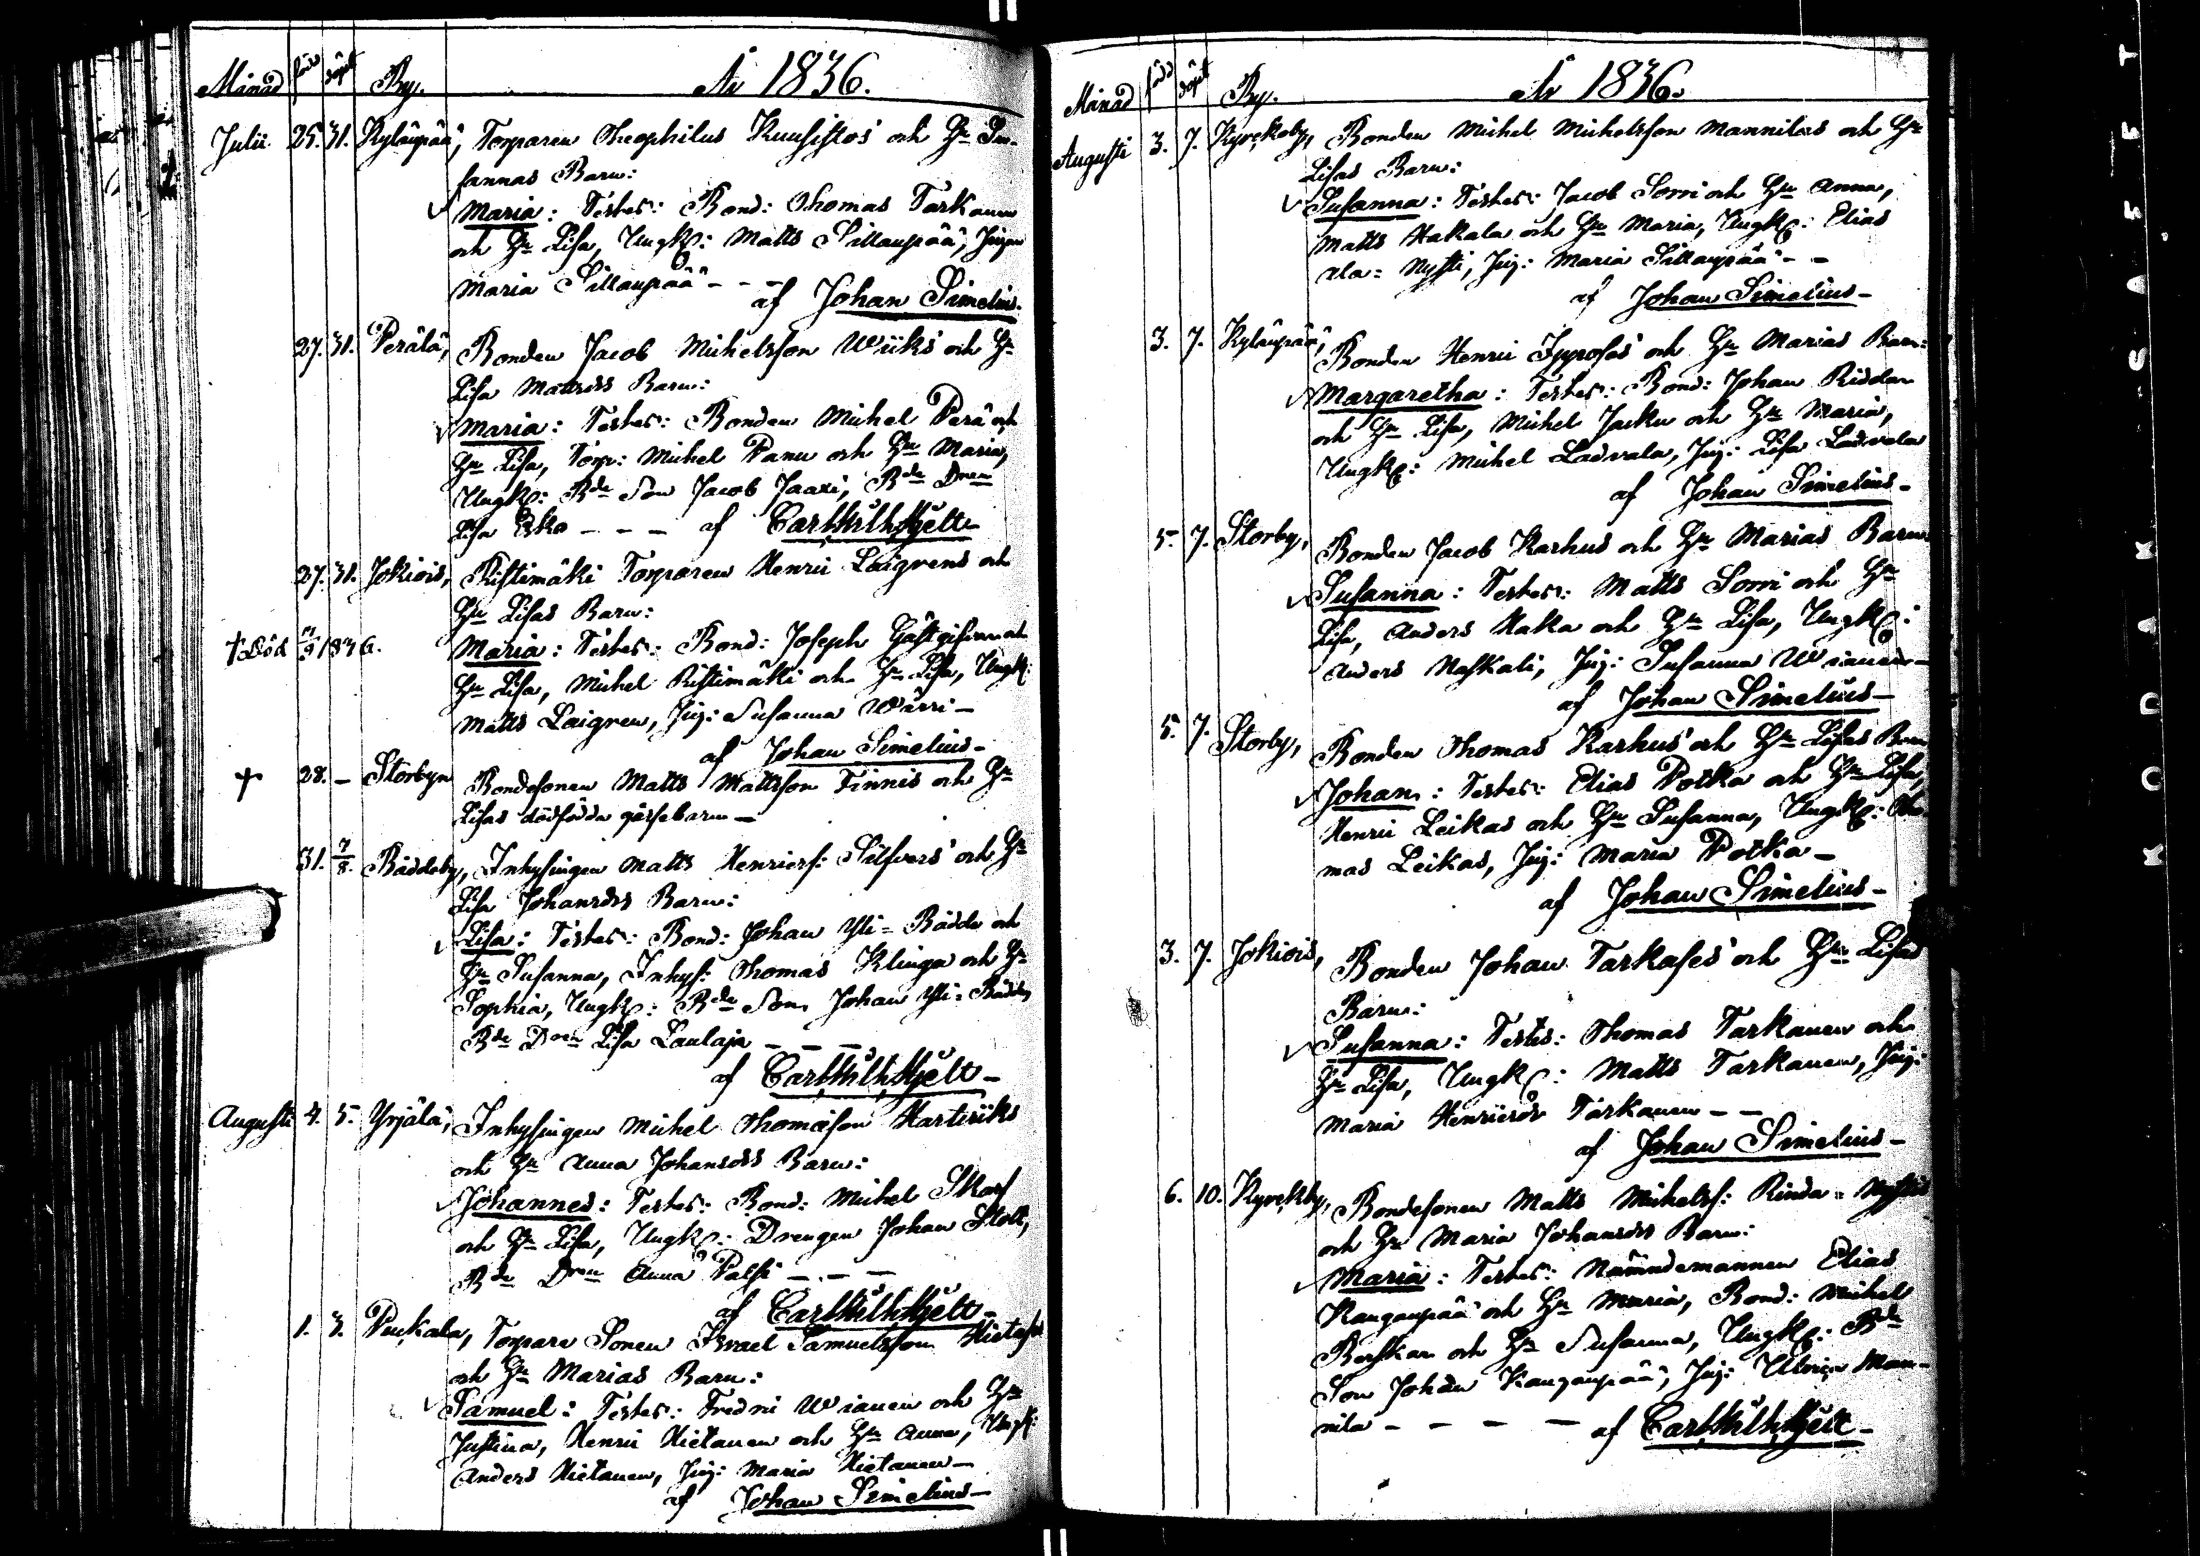 Månad född döpt By. År 1836.
Julii 25. 31. Kyläupää, Torparen Theophilus Kuusistos och Hu Su-
sannas Barn:
Maria: Testes: Bond: Thomas Tarkanen
och Hu Lisa, Ungk: Matts Sillanpää, Pigan
Maria Sillanpää - - -
af Johan Simelius.
27. 31. Perälä, Bonden Jacob Michelsson Wiiks och Hu
Lisa Mattsdrs Barn:
Maria: Testes: Bonden Michel Perä och
Hu Lisa, Torp: Michel Panu och Hu Maria,
Ungk: Bde Son Jacob Jaaxi, Bde Dren
Lisa Esko - - - af Carl Wilh. Hjelt
27. 31. Jokiois, Ristimäki Torparen Henric Laigrens och
Hu Lisas Barn:
† Död 11/9 1836. Maria: Testes: Bond: Joseph Gästgifvare och
Hu Lisa, Michel Ristimäki och Hu Lisa, Ungk:
Matts Laigren, Pig: Susanna Wärri -
af Johan Simelius -
† 28. - Storbyn Bondesonen Matts Mattsson Finnis och Hu
Lisas dödfödda gåssebarn -
31. 7/8. Bäddeby, Inhysingen Matts Henricss: Silfvers och Hu
Lisa Johansdrs Barn:
Lisa: Testes: Bond: Johan Yli-Bädde och
Hu Susanna, Inhys: Thomas Klinga och Hu
Sophia, Ungk: Bde Son Johan Yli-Bädde,
Bde Dren Lisa Laulaja - - -
af Carl Wilh. Hjelt -
Augusti 4. 5. Yrjälä, Inhysingen Michel Thomasson Martiniks
och Hu Anna Johansdrs Barn:
Johannes: Testes: Bond: Michel Skarf
och Hu Lisa, Ungk: Drengen Johan Stolt,
Bde Dren Anna Palsi - - -
af Carl Wilh. Hjelt -
1. 3. Puckala, Torpare Sonen Israel Samuelsson Hietases
och Hu Marias Barn:
Samuel: Testes: Fredric Wianen och Hu
Justina, Henric Hietanen och Hu Anna, Ungk:
Anders Hietanen, Pig: Maria Hietanen -
af Johan Simelius -
Månad född döpt By. År 1836.
Augusti 3. 7. Kyrckoby, Bonden Michel Michelsson Mannilas och Hu
Lisas Barn:
Susanna: Testes: Jacob Sorri och Hu Anna,
Matts Hakala och Hu Maria, Ungk: Elias
Ala-Nysti, Pig: Maria Sillanpää - -
af Johan Simelius -
3. 7. Kyläupää, Bonden Henric Ypprosas och Hu Marias Barn:
Margaretha: Testes: Bond: Johan Riddar
och Hu Lisa, Michel Jacku och Hu Maria,
Ungk: Michel Ladvala, Pig: Lisa Ladvala
af Johan Simelius -
5. 7. Storby, Bonden Jacob Karhus och Hu Marias Barn
Susanna: Testes: Matts Sorri och Hu
Lisa, Anders Haka och Hu Lisa, Ungk:
Anders Naskali, Pig: Susanna Wianen -
af Johan Simelius -
5. 7. Storby, Bonden Thomas Karhus och Hu Lisas Barn
Johan: Testes: Elias Potka och Hu Lisa,
Henric Leikas och Hu Susanna, Ungk: Tho-
mas Leikas, Pig: Maria Potka -
af Johan Simelius -
3. 7. Jokiois, Bonden Johan Tarkases och Hu Lisas
Barn:
Susanna: Testes: Thomas Tarkanen och
Hu Lisa, Ungk: Matts Tarkanen, Pig:
Maria Henricsdr Tarkanen - -
af Johan Simelius -
6. 10. Kyrckby, Bondesonen Matts Michelss: Rinda-Nystis
och Hu Maria Johansdrs Barn:
Maria: Testes: Nämndemannen Elias
Kangaupää och Hu Maria, Bond: Michel
Berskan och Hu Susanna, Ungk: Bde
Son Johan Kangaupää, Pig: Ulrica Man-
nila - - - - af Carl Wilh. Hjelt -
KODAK SAFETY